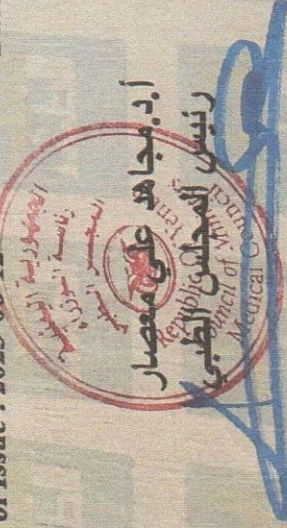 of Issue : 2023-08-12
أ.د.مجاهد علي معصار
رئيس المجلس الطبي
الجمهورية اليمنية
رئاسة الوزراء
المجلس الطبي
Republic of Yemen
Council of Ministers
Medical Council